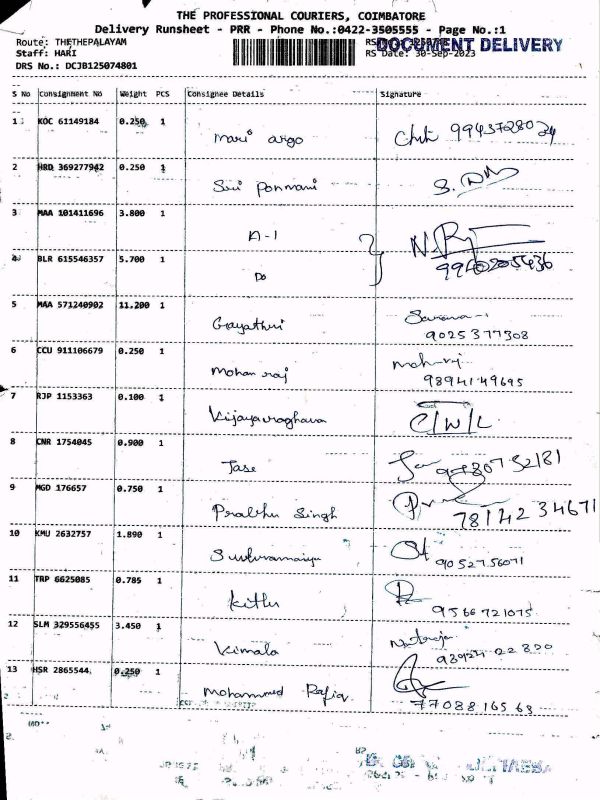 THE PROFESSIONAL COURIERS, COIMBATORE
Delivery Runsheet - PRR - Phone No.:0422-3505555 - Page No.:1
Route: THETHEPALAYAM
DOCUMENT DELIVERY
Staff: HARI RS Date: 30-Sep-2023
DRS No.: DCJB125074801
S No Consignment No Weight PCS Consignee Details Signature
1 KOC 61149184 0.250 1
Mari argo 9943728024
2 HBD 369277942 0.250 1
Siri Ponmani
3 MAA 101411696 3.800 1
A-1
4 BLR 615546357 5.700 1
Do
5 MAA 571240902 11.200 1
Gayathri
9025377308
6 CCU 911106679 0.250 1
Mohan raj
9894149695
7 RJP 1153363 0.100 1
Vijayaraghava C/W/L
8 CNR 1754045 0.900 1
Jase
9 MGD 176657 0.750 1
Prabhu Singh 7814234671
10 KMU 2632757 1.890 1
9052756071
11 TRP 6625085 0.785 1
Kithu 9566721075
12 SLM 329556455 3.450 1
Vimala
13 HSR 2865544 0.250 1
Mohammed Rafiq 7708816563